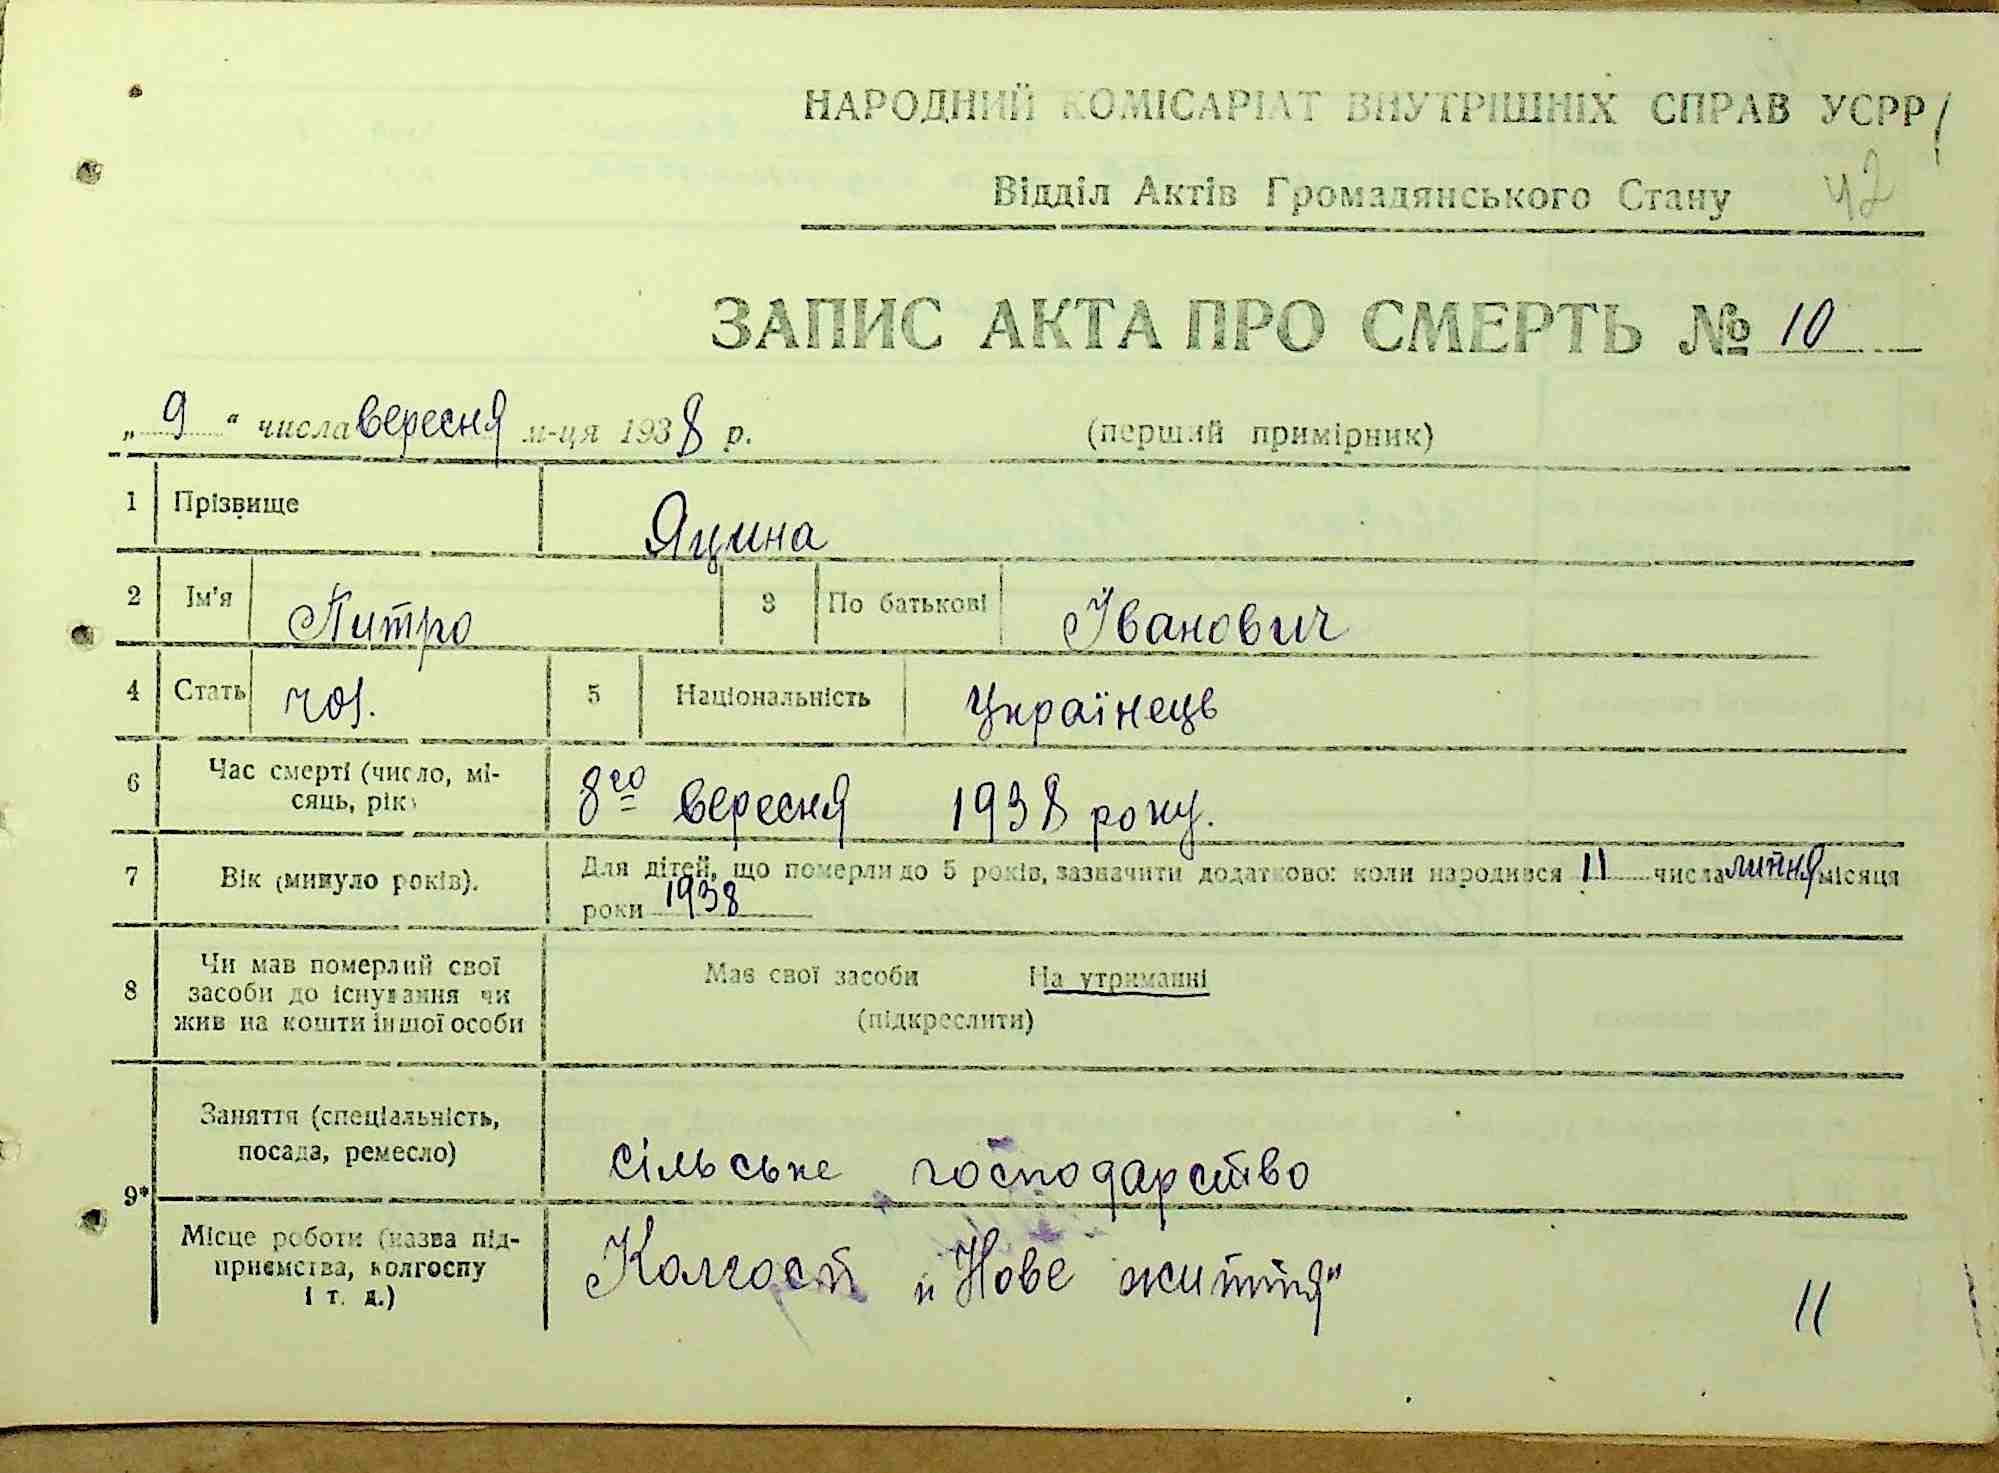 НАРОДНИЙ КОМІСАРІАТ ВНУТРІШНІХ СПРАВ УСРР
Відділ Актів Громадянського Стану 42
ЗАПИС АКТА ПРО СМЕРТЬ № 10
„ 9 “ числа вересня м-ця 1938 р. (перший примірник)
1 Прізвище Яцина
2 Ім'я Питро 3 По батькові Іванович
4 Стать чол. 5 Національність Українець
6 Час смерті (число, мі-
сяць, рік) 8го вересня 1938 року.
7 Вік (минуло років). Для дітей, що померли до 5 років, зазначити додатково: коли народився 11 числа липня місяця
роки 1938
8 Чи мав померлий свої
засоби до існування чи
жив на кошти іншої особи
Має свої засоби На утриманні
(підкреслити)
9* Заняття (спеціальність,
посада, ремесло) сільське господарство
Місце роботи (назва під-
приємства, колгоспу
і т. д.) Колгосп „Нове життя"
11